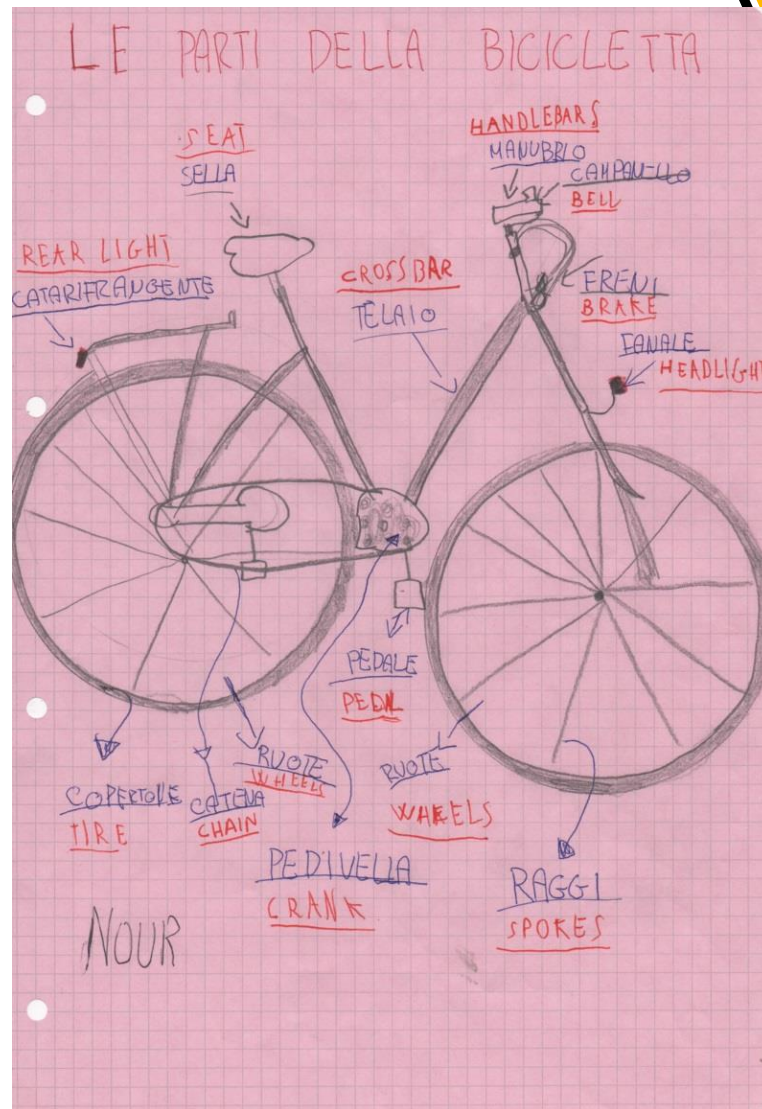 LE PARTI DELLA BICICLETTA
SEAT
SELLA
HANDLEBARS
MANUBRIO
CAMPANELLO
BELL
REAR LIGHT
CATARIFRANGENTE
CROSSBAR
TELAIO
FRENI
BRAKE
FANALE
HEADLIGHT
PEDALE
PEDAL
RUOTE
WHEELS
RUOTE
WHEELS
COPERTONE
TIRE
CATENA
CHAIN
PEDIVELLA
CRANK
RAGGI
SPOKES
NOUR